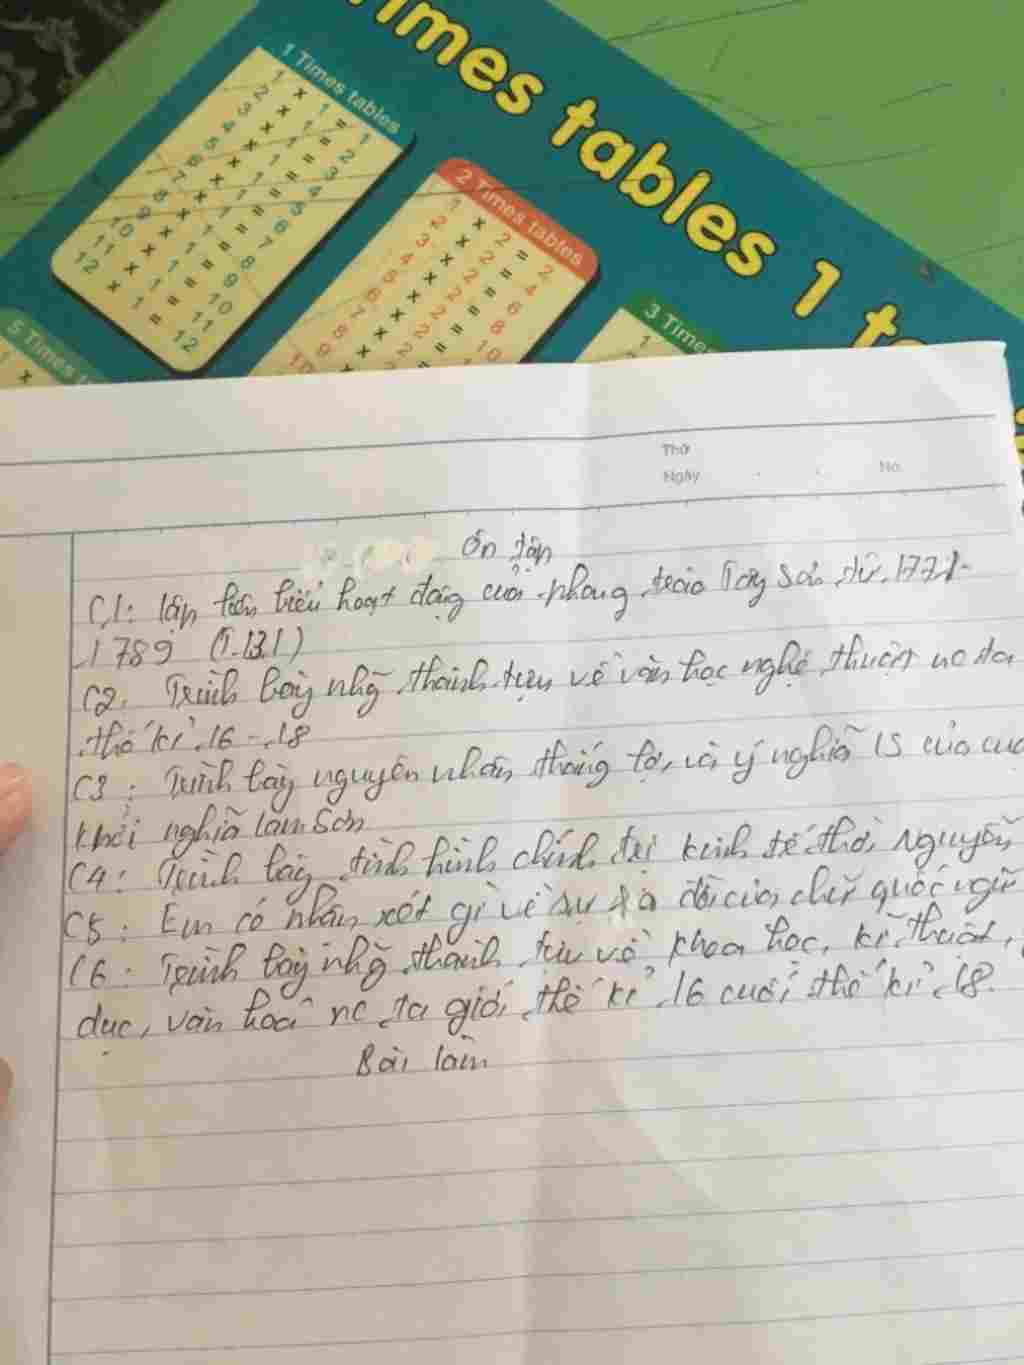 Times tables 1 to
1 Times tables
1 × 1 = 1
2 × 1 = 2
3 × 1 = 3
4 × 1 = 4
5 × 1 = 5
6 × 1 = 6
7 × 1 = 7
8 × 1 = 8
9 × 1 = 9
10 × 1 = 10
11 × 1 = 11
12 × 1 = 12
2 Times tables
1 × 2 = 2
2 × 2 = 4
3 × 2 = 6
4 × 2 = 8
5 × 2 = 10
6 × 2 =
7 × 2
8 ×
9 ×
10
3 Times
1
5 Times t
1 ×
Thứ
Ngày No.
Ôn tập
C1: lập liên biểu hoạt động của phong trào Tây Sơn từ 1771-
1789 (T.131)
C2. Trình bày nhg thành tựu về văn học nghệ thuật nc ta
thế kỉ 16 - 18
C3: Trình bày nguyên nhân thắng lợi và ý nghĩa LS của cuộ
khởi nghĩa lam Sơn
C4: Trình bày tình hình chính trị kinh tế thời Nguyễn
C5: Em có nhận xét gì về sự ra đời của chữ quốc ngữ
C6: Trình bày nhg thành tựu về khoa học, kĩ thuật,
dục, văn hoá nc ta giới thế kỉ 16 cuối thế kỉ 18.
Bài làm